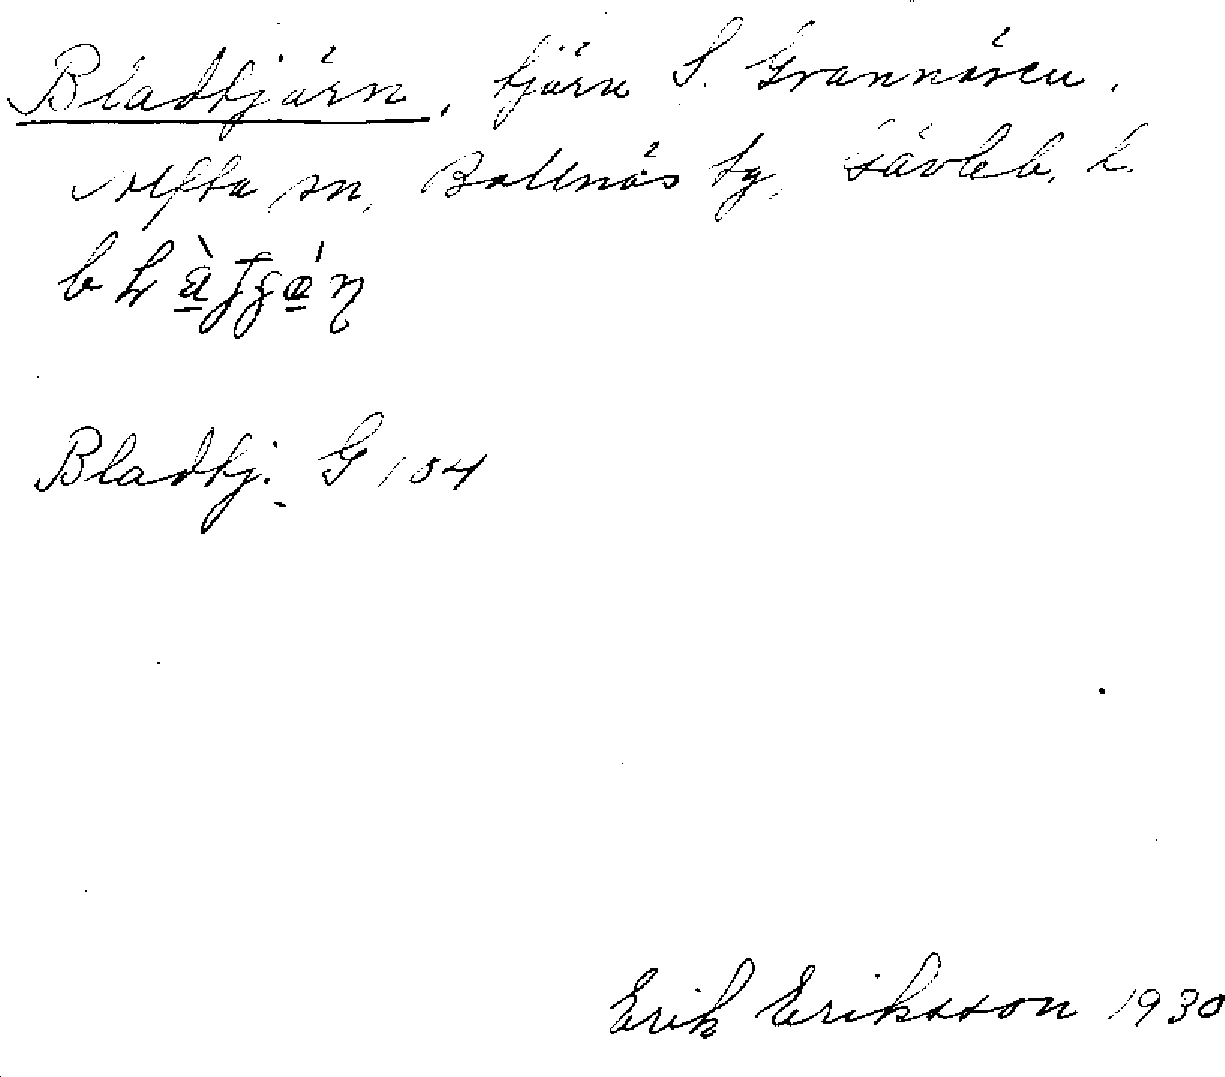 Bladtjärn, tjärn S. Grannåsen.
Alfta sn, Bollnäs tg, Gävleb. l.
Bladtj. G 104
Erik Eriksson 1930